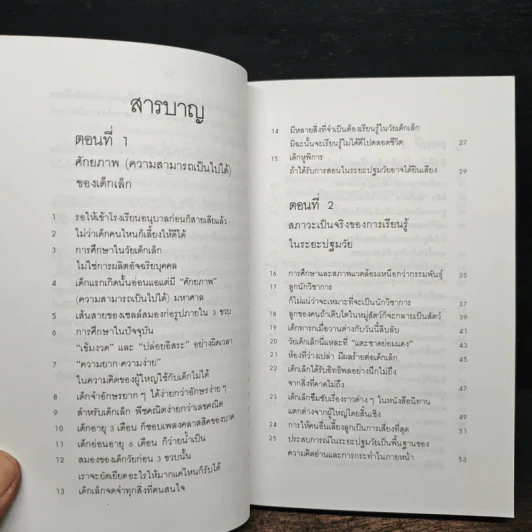 สารบาญ
ตอนที่ 1
ศักยภาพ (ความสามารถเป็นไปได้)
ของเด็กเล็ก
1 รอให้เข้าโรงเรียนอนุบาลก่อนก็สายเสียแล้ว
2 ไม่ว่าเด็กคนไหนก็เลี้ยงให้ดีได้
3 การศึกษาในวัยเด็กเล็ก
ไม่ใช่การผลิตอัจฉริยบุคคล
4 เด็กแรกเกิดนั้นอ่อนแอแต่มี "ศักยภาพ"
(ความสามารถเป็นไปได้) มหาศาล
5 เส้นสายของเซลล์สมองก่อรูปภายใน 3 ขวบ
6 การศึกษาในปัจจุบัน
"เข้มงวด" และ "ปล่อยอิสระ" อย่างผิดเวลา
7 "ความยาก-ความง่าย"
ในความคิดของผู้ใหญ่ใช้กับเด็กไม่ได้
8 เด็กจำอักษรยาก ๆ ได้ง่ายกว่าอักษรง่าย ๆ
9 สำหรับเด็กเล็ก พีชคณิตง่ายกว่าเลขคณิต
10 เด็กอายุ 3 เดือน ก็ชอบเพลงคลาสสิคของบาค
11 เด็กอ่อนอายุ 6 เดือน ก็ว่ายน้ำเป็น
12 สมองของเด็กวัยก่อน 3 ขวบนั้น
เราจะยัดเยียดอะไรให้มากแค่ไหนก็รับได้
13 เด็กเล็กจดจำทุกสิ่งที่ตนสนใจ
14 มีหลายสิ่งที่จำเป็นต้องเรียนรู้ในวัยเด็กเล็ก
มิฉะนั้นจะเรียนรู้ไม่ได้ไปตลอดชีวิต 27
15 เด็กหูพิการ
ถ้าได้รับการสอนในระยะปฐมวัยอาจได้ยินเสียง 29
ตอนที่ 2
สภาวะเป็นจริงของการเรียนรู้
ในระยะปฐมวัย
16 การศึกษาและสภาพแวดล้อมเหนือกว่ากรรมพันธุ์ 35
17 ลูกนักวิชาการ
ก็ไม่แน่ว่าจะเหมาะที่จะเป็นนักวิชาการ 37
18 ลูกของคนถ้าเติบโตในหมู่สัตว์ก็จะกลายเป็นสัตว์ 39
19 เด็กทารกเมื่อวานต่างกับวันนี้ลิบลับ 41
20 วัยเด็กเล็กนี่แหละที่ "แตะชาดย่อมแดง" 43
21 ห้องที่ว่างเปล่า มีผลร้ายต่อเด็กเล็ก 45
22 เด็กเล็กได้รับอิทธิพลอย่างนึกไม่ถึง
จากสิ่งที่คาดไม่ถึง 47
23 เด็กเล็กซึมซับเรื่องราวต่าง ๆ ในหนังสือนิทาน
แตกต่างจากผู้ใหญ่โดยสิ้นเชิง 49
24 การให้คนอื่นเลี้ยงลูกเป็นการเสี่ยงที่สุด 51
25 ประสบการณ์ในระยะปฐมวัยเป็นพื้นฐานของ
ความคิดอ่านและการกระทำในภายหน้า 53